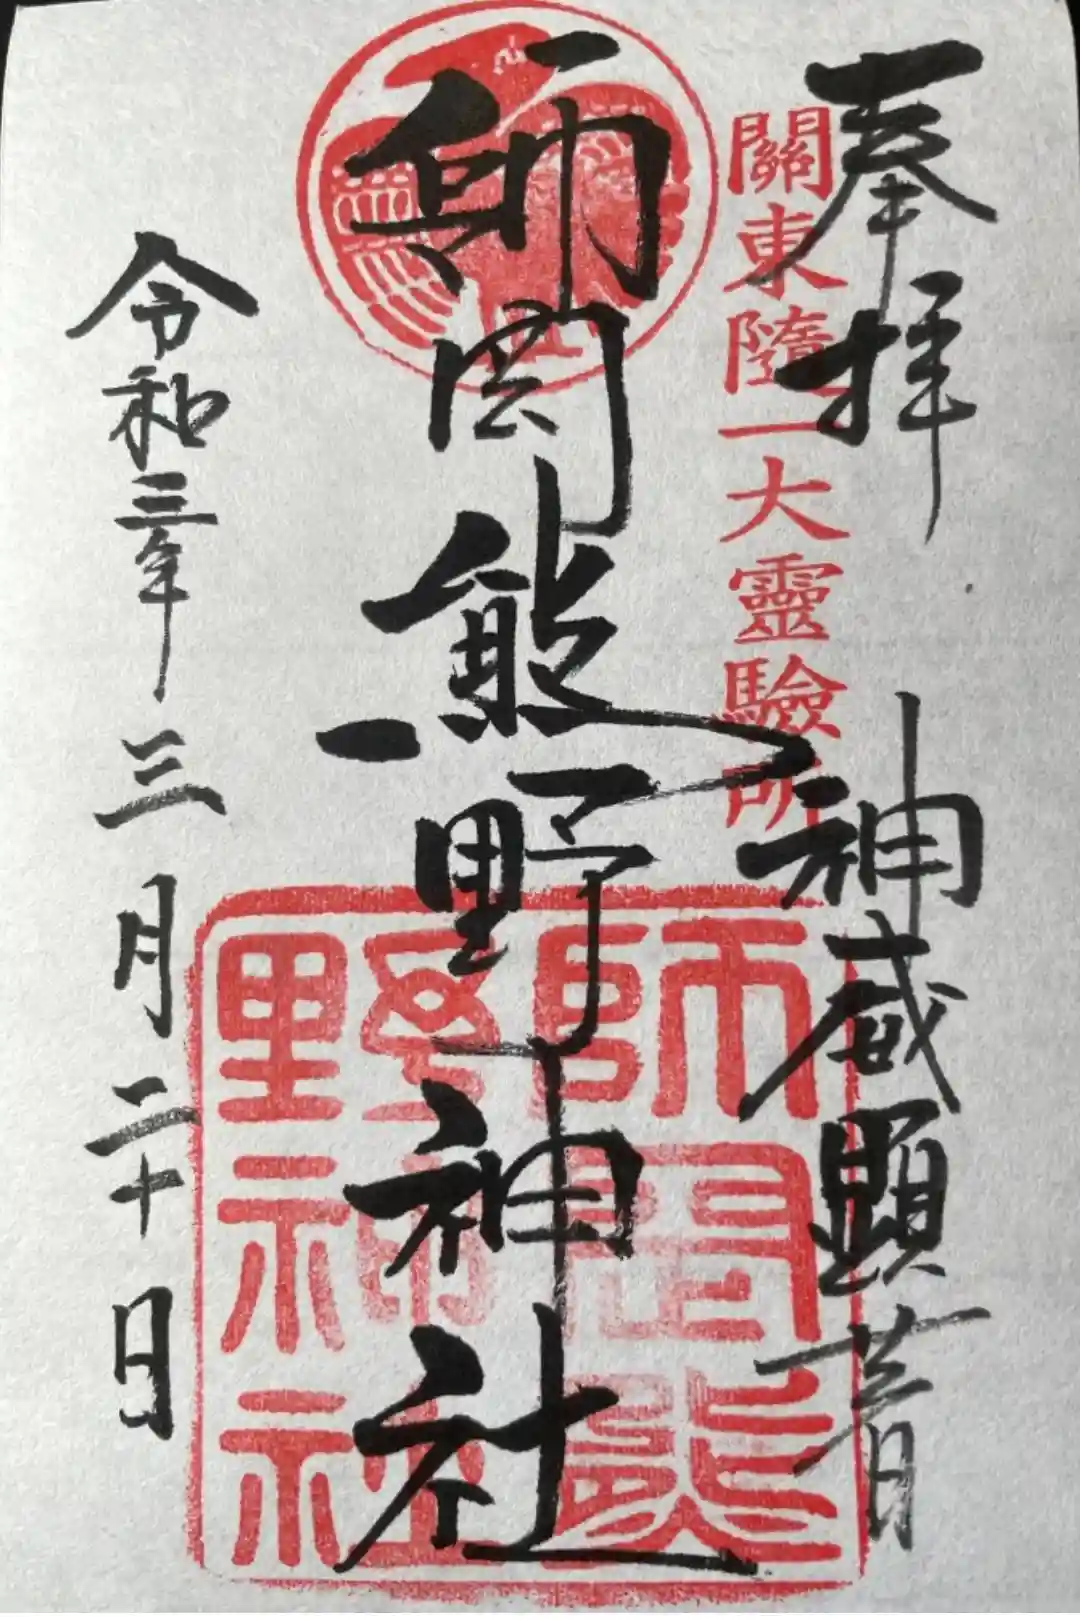 奉拝
神威顕著
關東随一大靈驗所
師岡熊野神社
師岡熊野神社
令和三年三月二十日